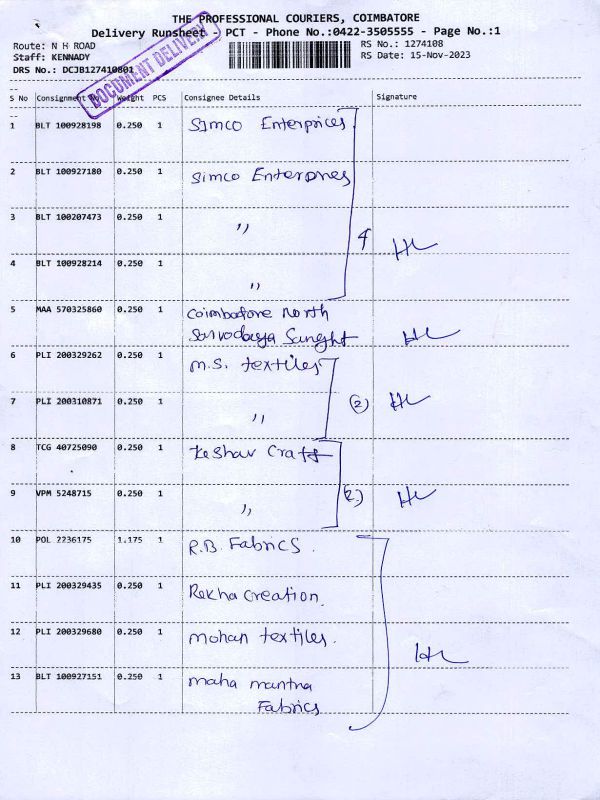 THE PROFESSIONAL COURIERS, COIMBATORE
Delivery Runsheet - PCT - Phone No.:0422-3505555 - Page No.:1
Route: N H ROAD
Staff: KENNADY
DRS No.: DCJB127410801
RS No.: 1274108
RS Date: 15-Nov-2023
DOCUMENT DELIVERY
S No Consignment Weight PCS Consignee Details Signature
1 BLT 100928198 0.250 1 Simco Enterprices
2 BLT 100927180 0.250 1 Simco Enterprises
3 BLT 100207473 0.250 1 "
4
4 BLT 100928214 0.250 1 "
5 MAA 570325860 0.250 1 Coimbatore North
Sarvodaya Sanght
6 PLI 200329262 0.250 1 M.S. textiles
7 PLI 200310871 0.250 1 " (2)
8 TCG 40725090 0.250 1 Keshav Craft
9 VPM 5248715 0.250 1 " (2)
10 POL 2236175 1.175 1 R.B. Fabrics.
11 PLI 200329435 0.250 1 Rekha Creation.
12 PLI 200329680 0.250 1 mohan textiles.
13 BLT 100927151 0.250 1 maha mantna
Fabrics